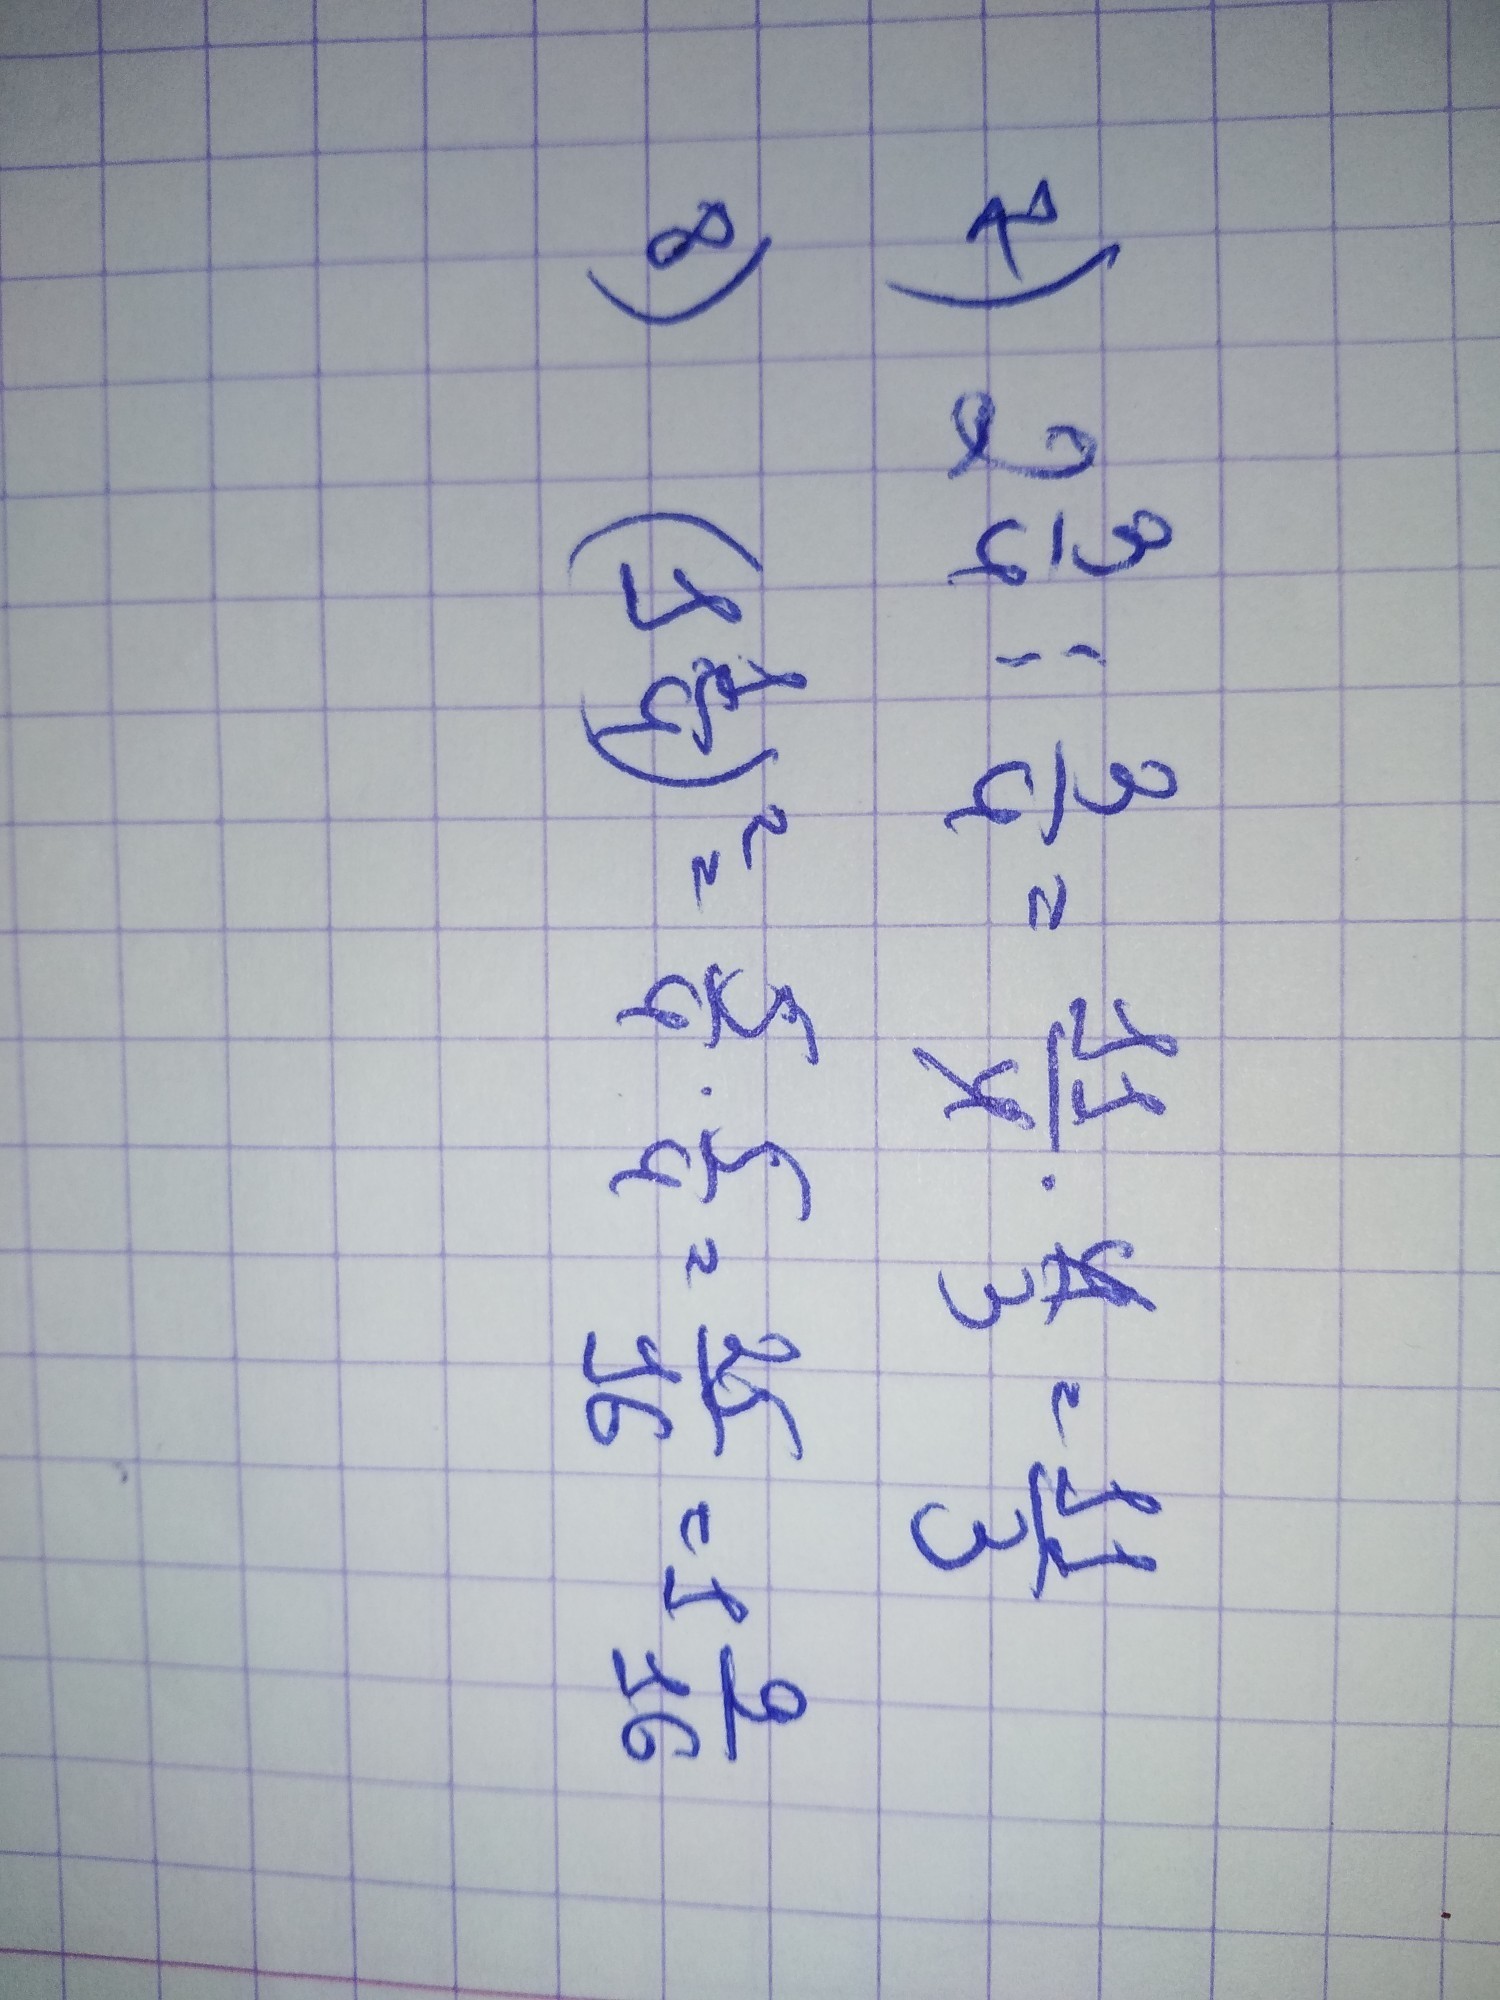 7) 2 3/4 : 3/4 = 11/4 · 4/3 = 11/3
8) (1 1/4)² = 5/4 · 5/4 = 25/16 = 1 9/16